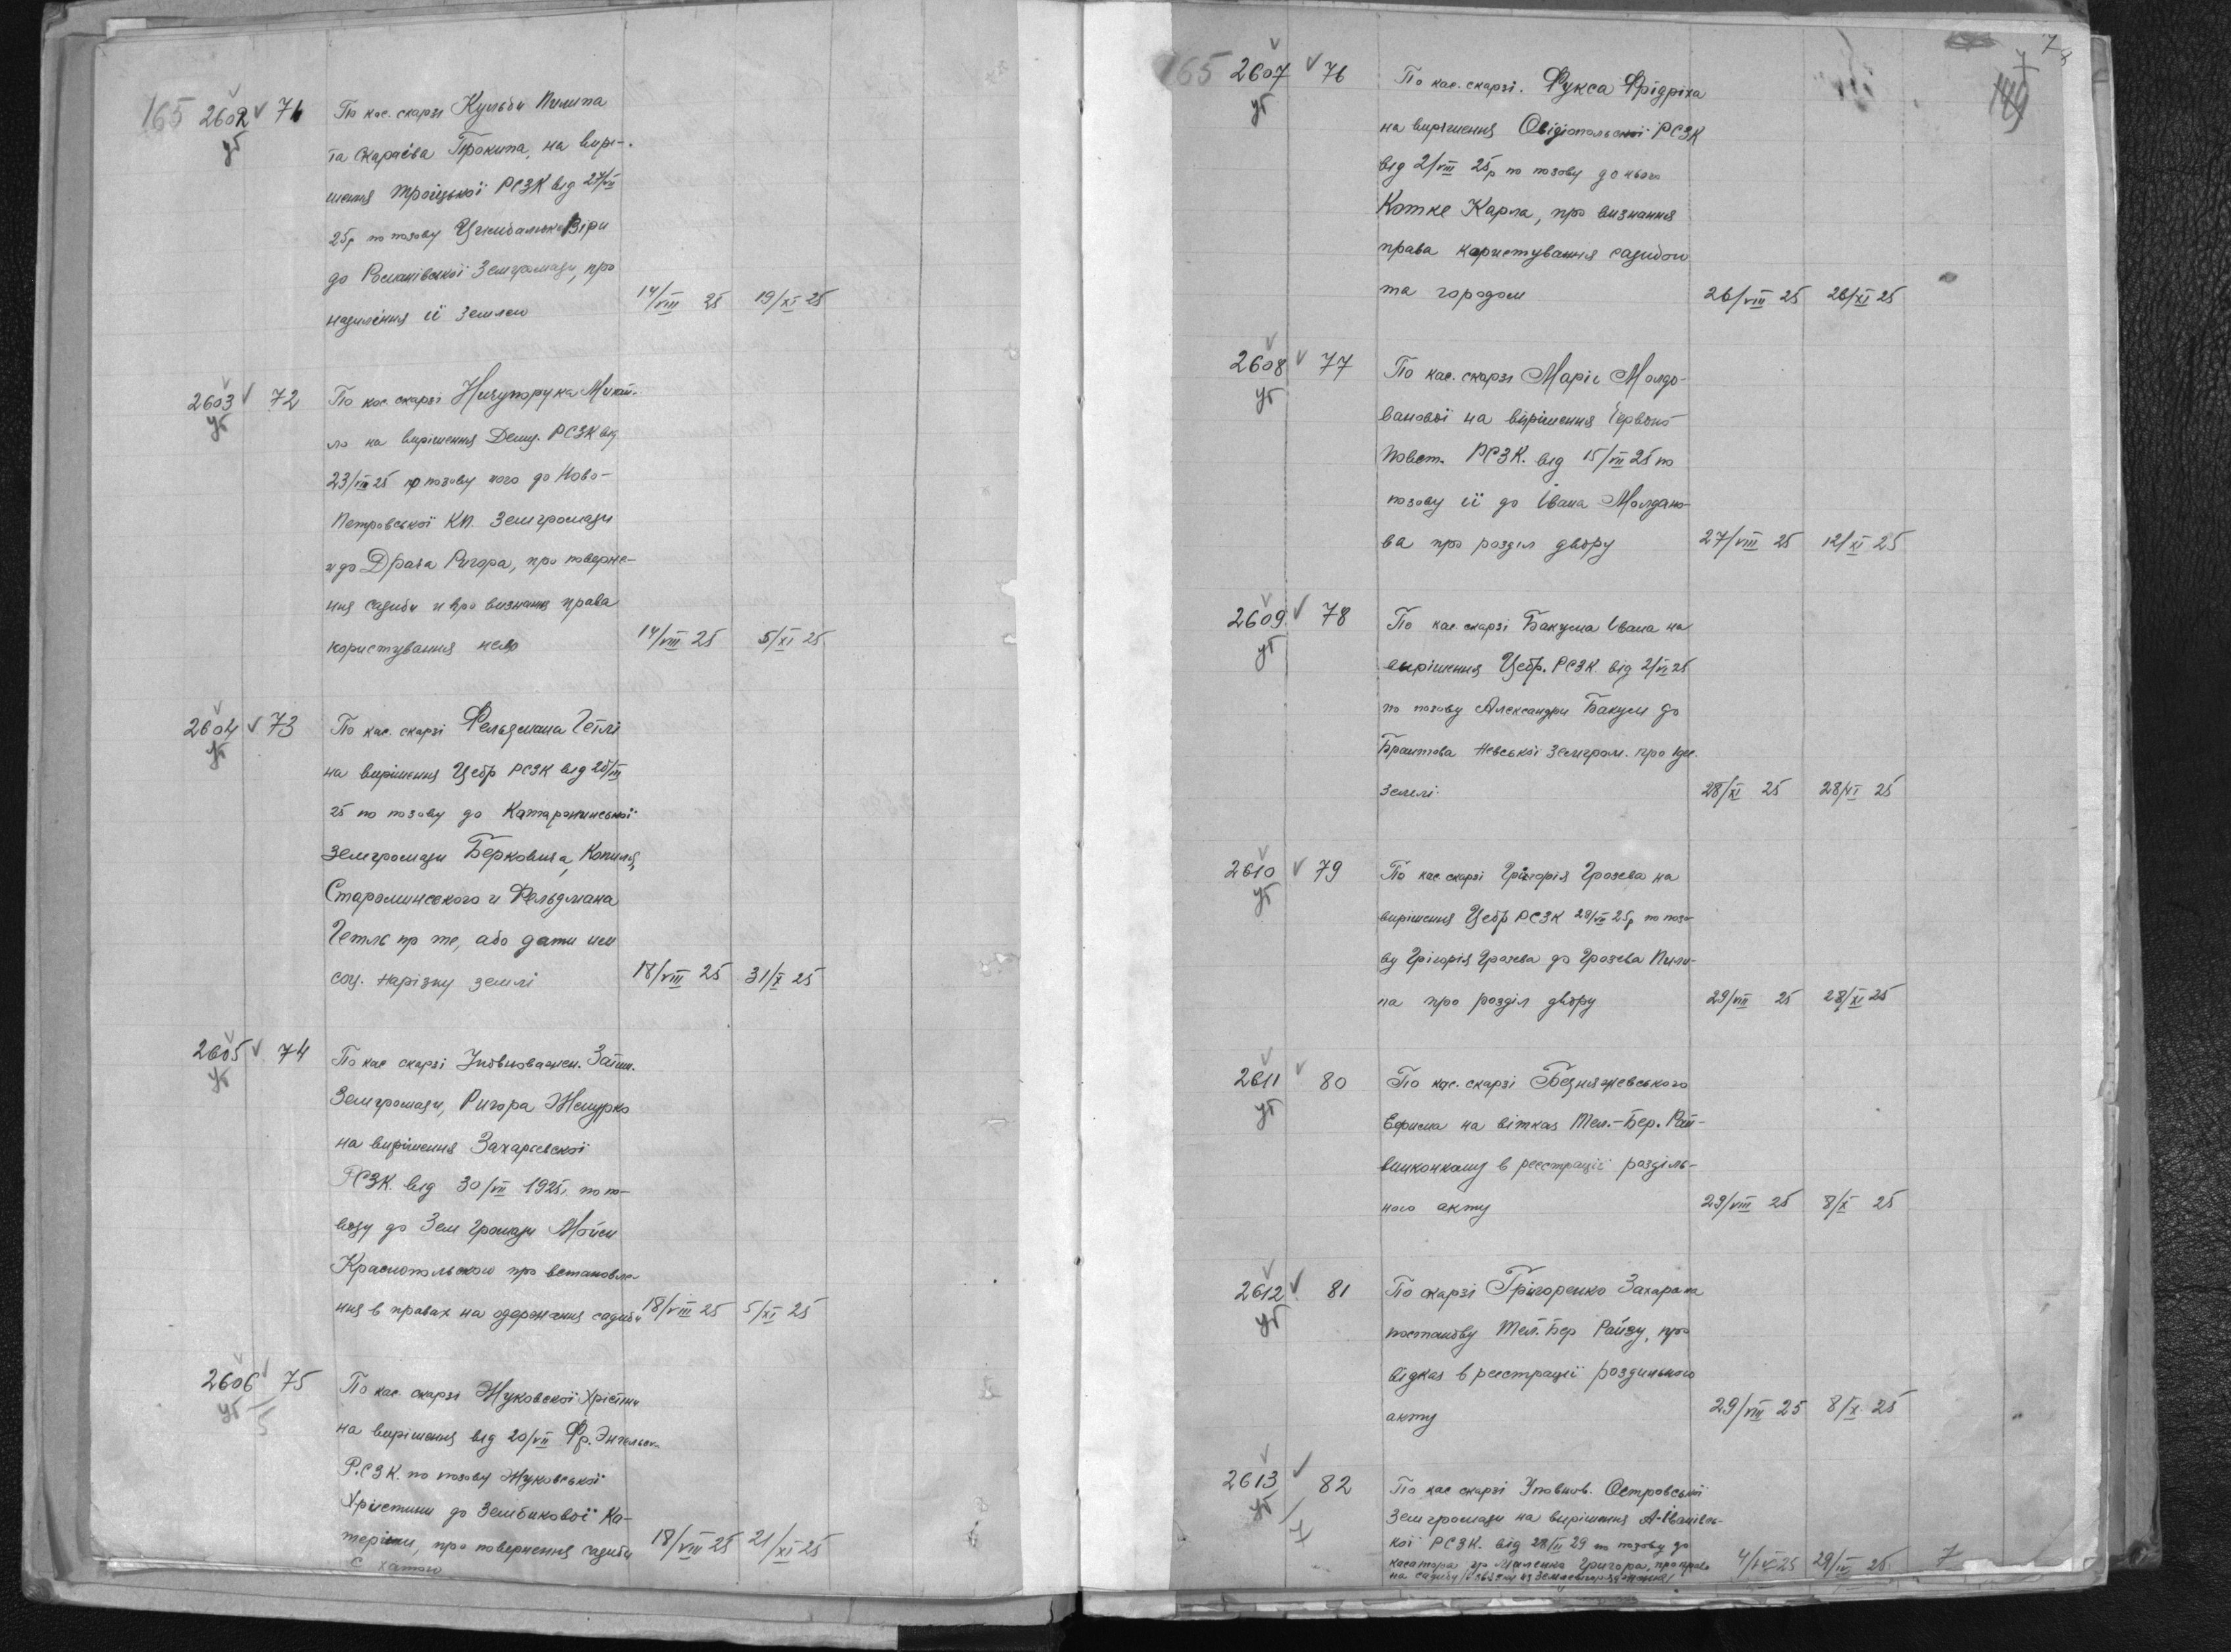 165 2602 71 По кас. скарзі Кульби Пилипа
уб та Скараєва Прокипа, на вирі-
шення Троїцької РСЗК від 27/VII
25р по позову Цимбалюк Віри
до Росианівської Земгромади, про
наділення її землею 14/VIII 25 19/XI 25
2603 72 По кас. скарзі Ничупорука Михай-
уб ла на вирішення Демид. РСЗК від
23/VII 25 по позову його до Ново-
Петровської КП. Земгромади
и до Драга Ригора, про поверне-
ння садиби и про визнання права
користування нею 14/VIII 25 5/XI 25
2604 73 По кас. скарзі Фельдмана Гетлі
уб на вирішення Цебр РСЗК від 25/VII
25 по позову до Катаржинської
Земгромади Берковича, Копиля,
Староминського и Фельдмана
Гетль пр те, або дати им
сод. нарізку землі 18/VIII 25 31/X 25
2605 74 По кас скарзі Уповноважен. Зайш.
уб Земгромади, Ригора Жемурко
на вирішення Захарієвскої
РСЗК. від 30/VII 1925. по по-
возу до Зем Громади Мойси
Краснопольского про встановле-
ння в правах на одержання садиби 18/VIII 25 5/XI 25
2606 75 По кас скарзі Жуковскої Хрістини
уб 5 на вирішення від 20/VII Фр. Энгельск.
Р.СЗК. по позову Жуковської
Хрістини до Зембикової Ка-
теріни, про повернення садиби 18/VIII 25 21/XI 25
с хатою
7
149
165 2607 76 По кас. скарзі. Фукса Фрідріха
уб на вирішення Овідіопольської РСЗК
від 2/VIII 25р по позову до нього
Котке Карла, про визнання
права користування садибою
та городом 26/VIII 25 26/XI 25
2608 77 По кас. скарзі Маріє Молдо-
уб ванової на вирішення Червоно
Повст. РСЗК. від 15/VII 25 по
позову її до Івана Молдано-
ва про розділ двору 27/VIII 25 12/XI 25
2609 78 По кас. скарзі Бакума Івана на
уб вирішення Цебр. РСЗК. від 2/VI 25
по позову Александри Бакум до
Брантова Невської Земгром. про
землі. 28/XI 25 28/XI 25
2610 79 По кас. скарзі Грігорія Грозева на
уб вирішення Цебр РСЗК 29/VII 25р по позо-
ву Грігорія Грозева до Грозева Пили-
па про розділ двору 29/VIII 25 28/XI 25
2611 80 По кас. скарзі Безняжевського
уб Єфрима на вітказ Тел.-Бер. Рай-
виконкому в реестрації розділь-
ного акту 29/VIII 25 8/X 25
2612 81 По скарзі Грігоренко Захара на
уб постанову Тел. Бер Райзу, про
відказ в реестрації роздильного
акту 29/VIII 25 8/X 25
2613 82 По кас скарзі Уповнов. Островської
уб 7 Земгромади на вирішення А-Іванівсь-
кої РСЗК. від 28/II 29 по позову до
касатора гр Маленка Григора, про право
на садибу 4/IX 25 29/IX 25. 7